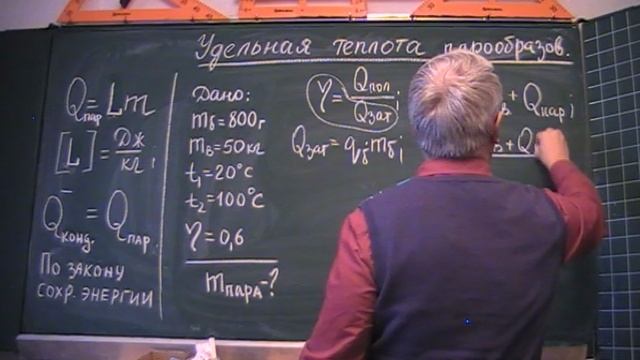 Удельная теплота парообразов.
Qпар = Lm
[L] = Дж/кг;
Qконд. = Qпар.
По закону
сохр. энергии
Дано:
mб = 800г
mв = 50кг
t₁ = 20°C
t₂ = 100°C
η = 0,6
mпара - ?
η = Qпол/Qзат;
Qзат = qбmб;
в + Qпар;
в + Q